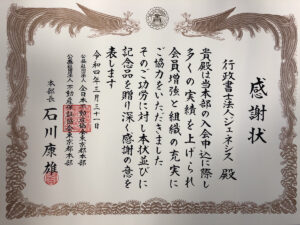 感謝状
行政書士法人ジェネシス 殿
貴殿は当本部の入会申込に際し
多くの実績を上げられ
会員増強と組織の充実に
ご協力をいただきました
そのご功労に対し本状並びに
記念品を贈り深く感謝の意を
表します
令和四年三月三十一日
公益社団法人 全日本不動産協会東京都本部
公益社団法人 不動産保証協会東京都本部
本部長 石川康雄